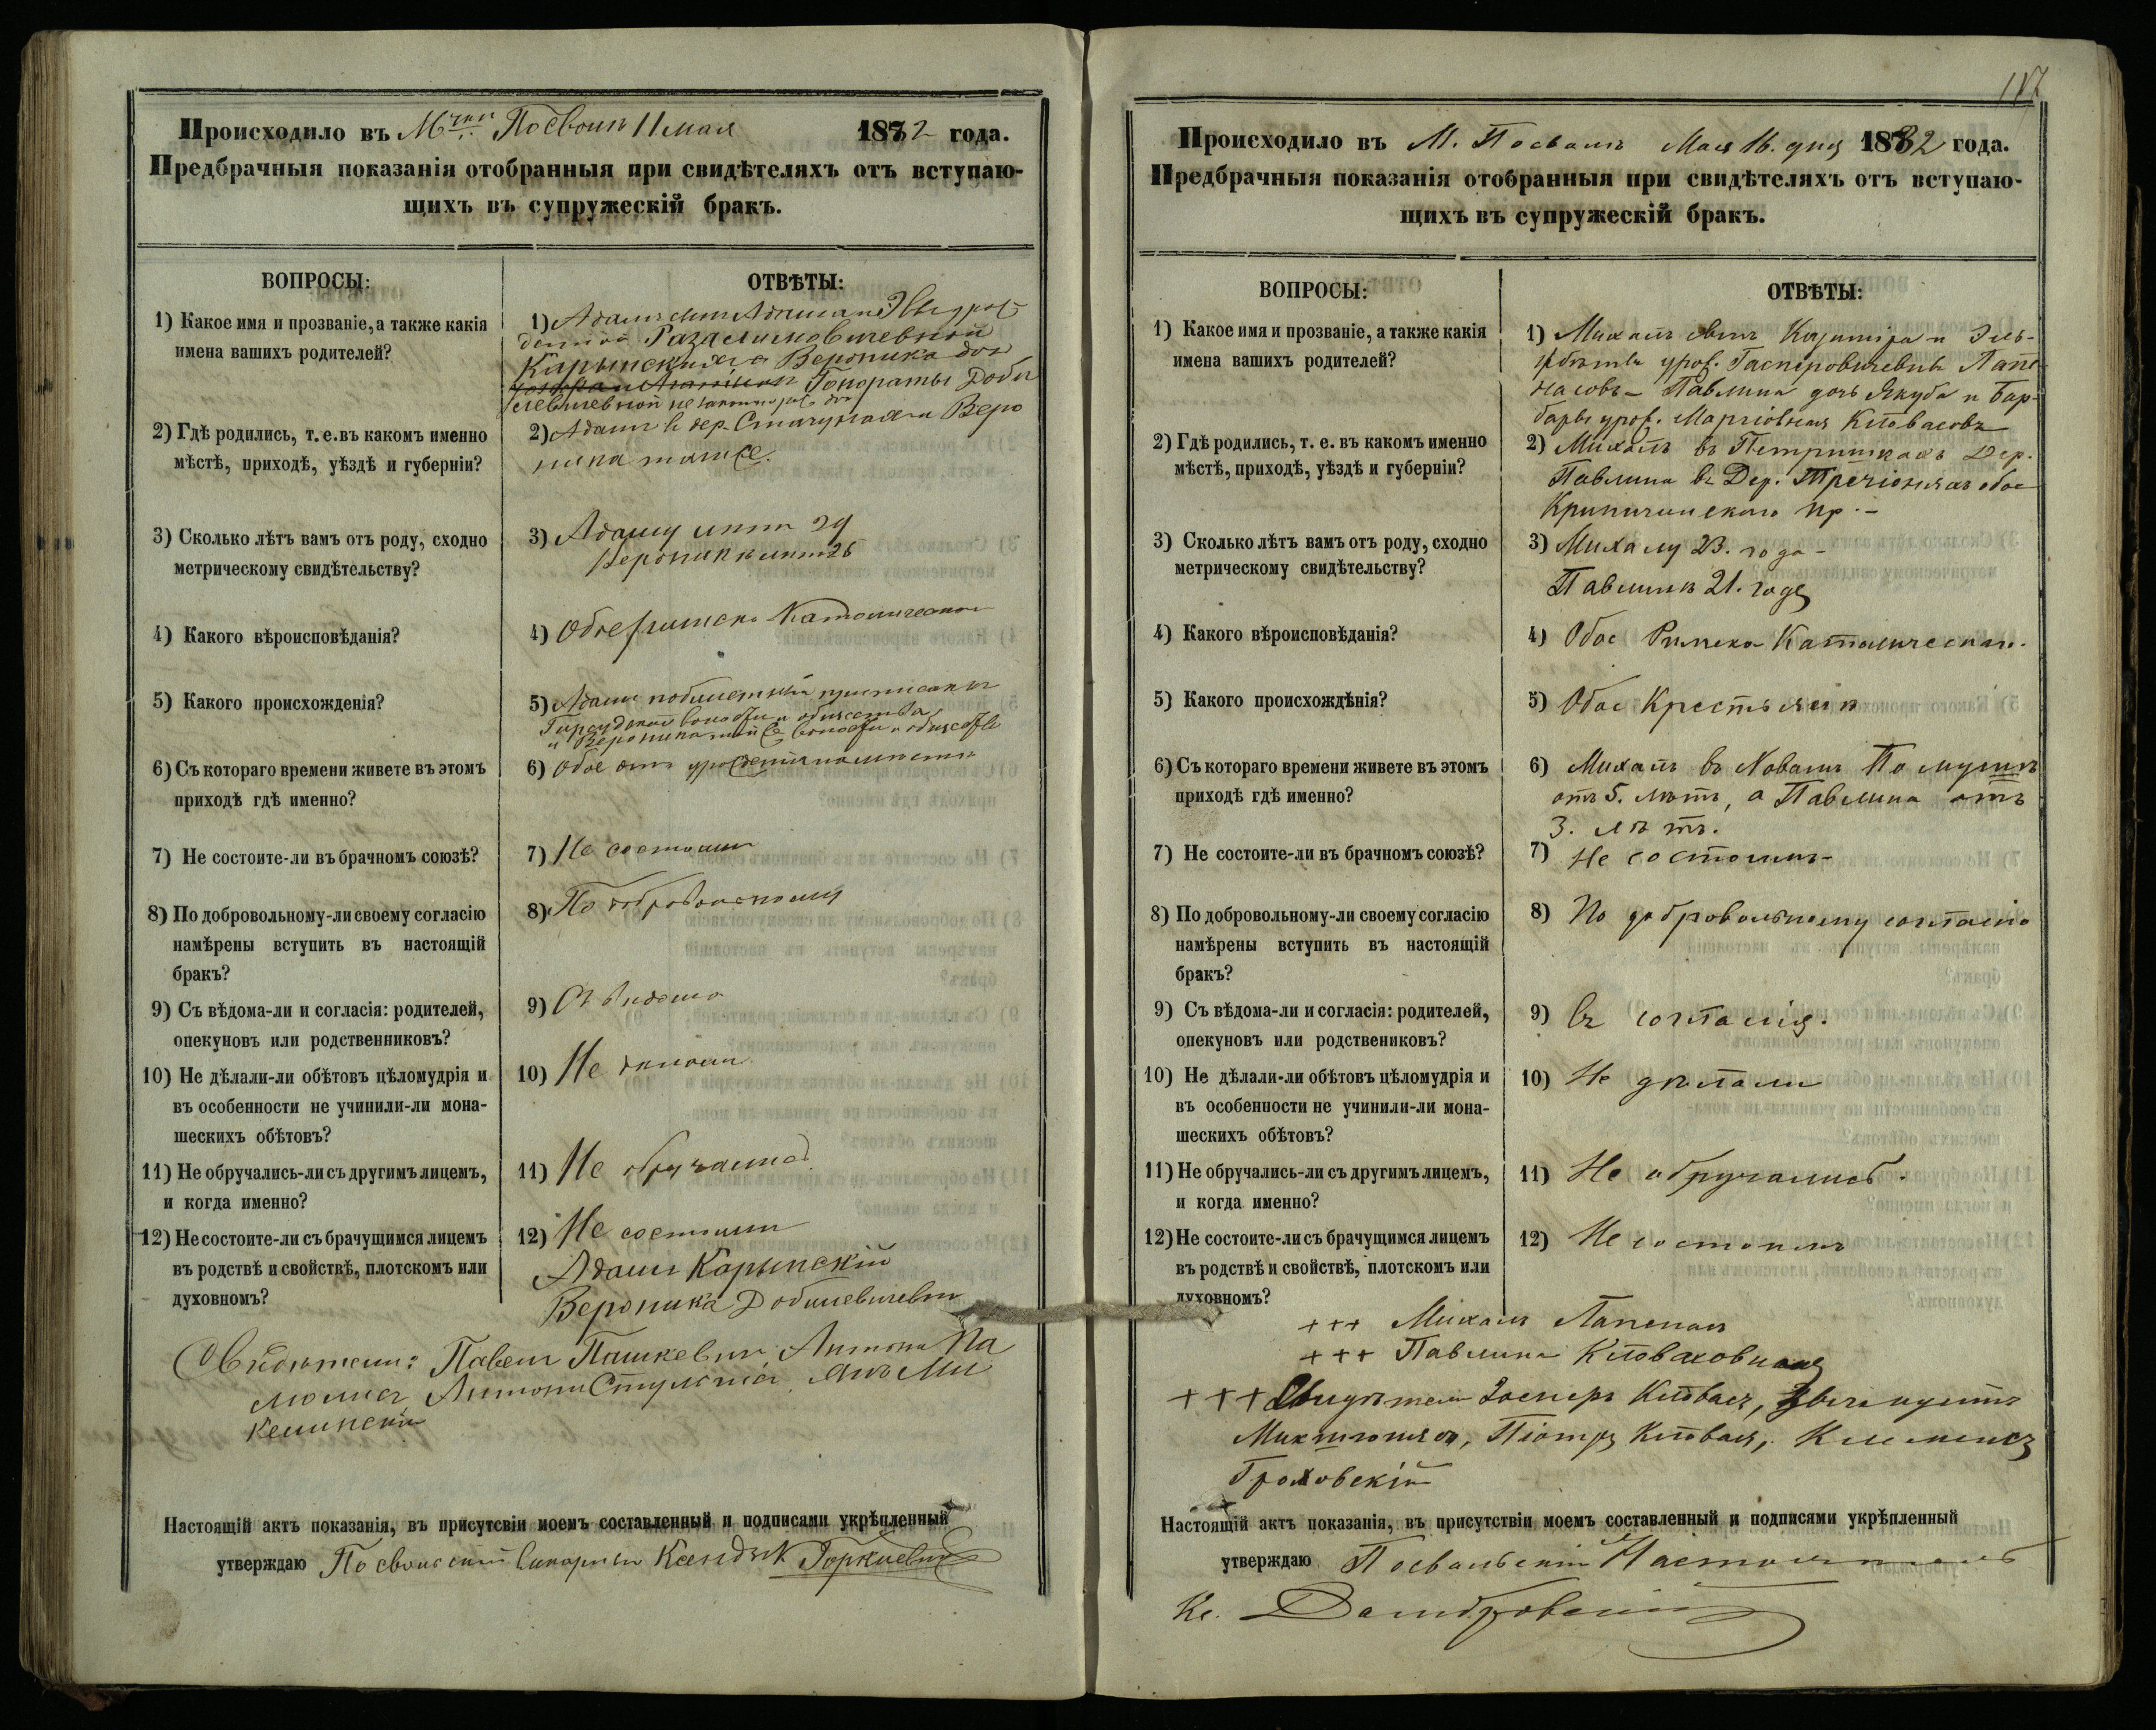 Происходило въ Мчкѣ Посволѣ 11 мая 1882 года.
Предбрачныя показанія отобранныя при свидѣтеляхъ отъ вступаю-
щихъ въ супружескій бракъ.
ВОПРОСЫ:
ОТВѢТЫ:
1) Какое имя и прозваніе, а также какія
имена вашихъ родителей?
1) Адамъ сынъ Адама и
Карынскихъ а Вероника дочь
Гонораты
2) Гдѣ родились, т. е. въ какомъ именно
мѣстѣ, приходѣ, уѣздѣ и губерніи?
2) Адамъ в дер. Веро
ника также.
3) Сколько лѣтъ вамъ отъ роду, сходно
метрическому свидѣтельству?
3) Адаму лѣтъ 29
Вероникѣ лѣтъ 26
4) Какого вѣроисповѣданія?
4) Обое Римско Католическаго
5) Какого происхожденія?
5) Адамъ
волости и общества
и Вероника той же волости и общества
6) Съ котораго времени живете въ этомъ
приходѣ гдѣ именно?
6) Обое отъ
7) Не состоите-ли въ брачномъ союзѣ?
7) Не состоимъ
8) По добровольному-ли своему согласію
намѣрены вступить въ настоящій
бракъ?
8) По добровольному
9) Съ вѣдома-ли и согласія: родителей,
опекуновъ или родственниковъ?
9) Съ вѣдома
10) Не дѣлали-ли обѣтовъ цѣломудрія и
въ особенности не учинили-ли мона-
шескихъ обѣтовъ?
10) Не дѣлали
11) Не обручались-ли съ другимъ лицемъ,
и когда именно?
11) Не обручались
12) Не состоите-ли съ брачущимся лицемъ
въ родствѣ и свойствѣ, плотскомъ или
духовномъ?
12) Не состоимъ
Адамъ Карынскій
Вероника Добилевичевна
Свидѣтели: Павелъ Пашкевич, Антони Па
Антони
Настоящій актъ показанія, въ присутсвіи моемъ составленный и подписями укрѣпленный
утверждаю Посвольскій Викарный Ксендзъ
187
Происходило въ М. Посволѣ Мая 16. дня 1882 года.
Предбрачныя показанія отобранныя при свидѣтеляхъ отъ вступаю-
щихъ въ супружескій бракъ.
ВОПРОСЫ:
ОТВѢТЫ:
1) Какое имя и прозваніе, а также какія
имена вашихъ родителей?
1) Михалъ сынъ Казиміра и Эль-
жбѣты урож. Гасперовичевнъ Лапе-
насовъ – Павлина дочь Якуба и Бар-
бары урож. Кловасовъ
2) Гдѣ родились, т. е. въ какомъ именно
мѣстѣ, приходѣ, уѣздѣ и губерніи?
2) Михалъ въ Петришкахъ Дер.
Павлина въ Дер. Тречіоняхъ обое
Крипичинскаго пр. –
3) Сколько лѣтъ вамъ отъ роду, сходно
метрическому свидѣтельству?
3) Михалу 23. года –
Павлинѣ 21. года
4) Какого вѣроисповѣданія?
4) Обое Римско Католическаго.
5) Какого происхождѣнія?
5) Обое Крестьянѣ
6) Съ котораго времени живете въ этомъ
приходѣ гдѣ именно?
6) Михалъ въ Новомъ
отъ 5. лѣтъ, а Павлина отъ
3. лѣтъ.
7) Не состоите-ли въ брачномъ союзѣ?
7) Не состоимъ –
8) По добровольному-ли своему согласію
намѣрены вступить въ настоящій
бракъ?
8) По добровольному согласію
9) Съ вѣдома-ли и согласія: родителей,
опекуновъ или родствениковъ?
9) Съ согласія.
10) Не дѣлали-ли обѣтовъ цѣломудрія и
въ особенности не учинили-ли мона-
шескихъ обѣтовъ?
10) Не дѣлали
11) Не обручались-ли съ другимъ лицемъ,
и когда именно?
11) Не обручались.
12) Не состоите-ли съ брачущимся лицемъ
въ родствѣ и свойствѣ, плотскомъ или
духовномъ?
12) Не состоимъ
+++ Михалъ Лапенас
+++ Павлина
+++ Свидѣтели Кловасъ,
Піотръ Кловасъ, Клеменсъ
Гроховскій
Настоящій актъ показанія, въ присутствіи моемъ составленный и подписями укрѣпленный
утверждаю Посвольскій Настоятель
Кс. Домбровскій